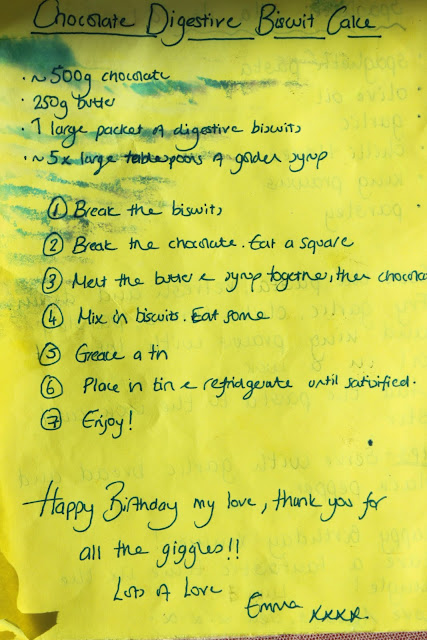 Chocolate Digestive Biscuit Cake
· ~ 500g chocolate
· 250g butter
· 1 large packet of digestive biscuits
· ~ 5x large tablespoons of golden syrup
① Break the biscuits
② Break the chocolate. Eat a square
③ Melt the butter & syrup together, then chocola
④ Mix in biscuits. Eat some
⑤ Grease a tin
⑥ Place in tin & refridgerate until satisified.
⑦ Enjoy!
Happy Birthday my love, thank you for
all the giggles!!
Lots of Love
Emma xxxx